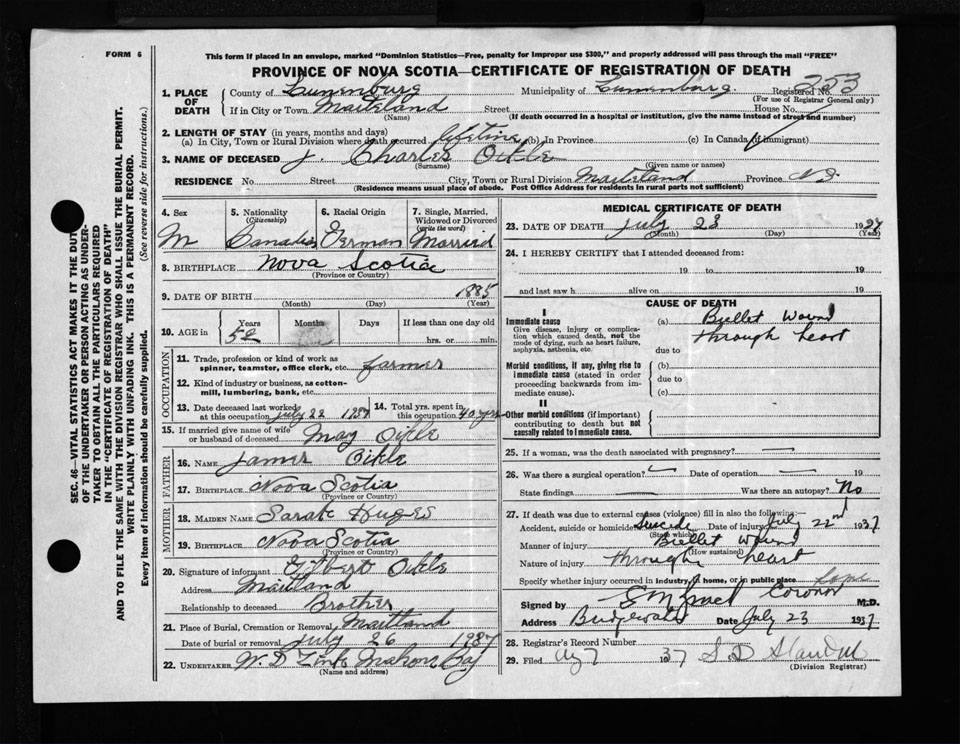 FORM 6
This form if placed in an envelope, marked "Dominion Statistics—Free, penalty for improper use $300," and properly addressed will pass through the mail "FREE"
PROVINCE OF NOVA SCOTIA—CERTIFICATE OF REGISTRATION OF DEATH
SEC. 46—VITAL STATISTICS ACT MAKES IT THE DUTY
OF THE UNDERTAKER OR PERSON ACTING AS UNDER-
TAKER TO OBTAIN ALL THE PARTICULARS REQUIRED
IN THE "CERTIFICATE OF REGISTRATION OF DEATH"
AND TO FILE THE SAME WITH THE DIVISION REGISTRAR WHO SHALL ISSUE THE BURIAL PERMIT.
WRITE PLAINLY WITH UNFADING INK. THIS IS A PERMANENT RECORD.
Every item of information should be carefully supplied. (See reverse side for instructions.)
1. PLACE OF DEATH County of Lunenburg Municipality of Lunenburg. Registered No. 253
(For use of Registrar General only)
If in City or Town Maitland Street House No.
(Name) (If death occurred in a hospital or institution, give the name instead of street and number)
2. LENGTH OF STAY (in years, months and days)
(a) In City, Town or Rural Division where death occurred lifetime (b) In Province (c) In Canada (if immigrant)
3. NAME OF DECEASED J. Charles Oikle
(Surname) (Given name or names)
RESIDENCE No. Street City, Town or Rural Division Maitland Province N.S.
(Residence means usual place of abode. Post Office Address for residents in rural parts not sufficient)
4. Sex M
5. Nationality (Citizenship) Canadian
6. Racial Origin German
7. Single, Married, Widowed or Divorced (write the word) Married
8. BIRTHPLACE Nova Scotia
(Province or Country)
9. DATE OF BIRTH 1885
(Month) (Day) (Year)
10. AGE in Years 52 Months Days If less than one day old
hrs. or min.
OCCUPATION
11. Trade, profession or kind of work as spinner, teamster, office clerk, etc. farmer
12. Kind of industry or business, as cotton-mill, lumbering, bank, etc.
13. Date deceased last worked at this occupation July 22 1937
14. Total yrs. spent in this occupation 40 yrs
15. If married give name of wife or husband of deceased May Oikle
FATHER
16. NAME James Oikle
17. BIRTHPLACE Nova Scotia
(Province or Country)
MOTHER
18. MAIDEN NAME Sarah Huges
19. BIRTHPLACE Nova Scotia
(Province or Country)
20. Signature of informant Gilbert Oikle
Address Maitland
Relationship to deceased Brother
21. Place of Burial, Cremation or Removal Maitland
Date of burial or removal July 26 1937
22. UNDERTAKER W. D. Zink Mahone Bay
(Name and address)
MEDICAL CERTIFICATE OF DEATH
23. DATE OF DEATH July 23 1937
(Month) (Day) (Year)
24. I HEREBY CERTIFY that I attended deceased from:
19 to 19
and last saw h alive on 19
CAUSE OF DEATH
I
Immediate cause (a) Bullet Wound
Give disease, injury or complication which caused death, not the mode of dying, such as heart failure, asphyxia, asthenia, etc. through heart
due to
Morbid conditions, if any, giving rise to immediate cause (stated in order proceeding backwards from immediate cause). (b)
due to
(c)
II
Other morbid conditions (if important) contributing to death but not causally related to immediate cause.
25. If a woman, was the death associated with pregnancy?
26. Was there a surgical operation? Date of operation 19
State findings Was there an autopsy? No
27. If death was due to external causes (violence) fill in also the following:—
Accident, suicide or homicide? Suicide Date of injury July 22nd 1937
(State which)
Manner of injury Bullet Wound
(How sustained)
Nature of injury through heart
Specify whether injury occurred in industry, in home, or in public place
Signed by Coroner M.D.
Address Bridgewater Date July 23 1937
28. Registrar's Record Number
29. Filed Aug 7 1937
(Division Registrar)